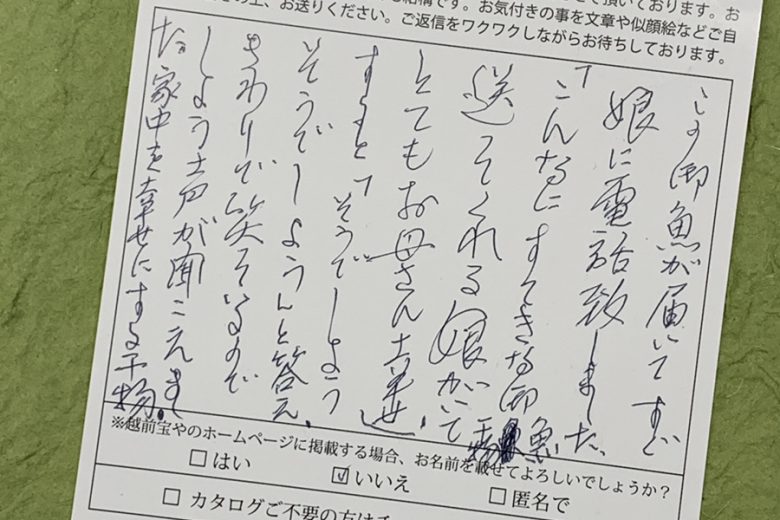 て頂いております。お
の上、お送りください。ご返信をワクワクしながらお待ちしております。
結構です。お気付きの事を文章や似顔絵などご自
この御魚が届いてすぐ
娘に電話致しました、
「こんなにすてきな御魚
送ってくれる娘がいて
とてもお母さん幸せ」
すると「そうでしょう
そうでしょう」と答え、
まわりで笑っているので
しょう声が聞こえまし
た家中を幸せにする干物。
※越前宝やのホームページに掲載する場合、お名前を載せてよろしいでしょうか？
はい
いいえ
匿名で
カタログご不要の方は